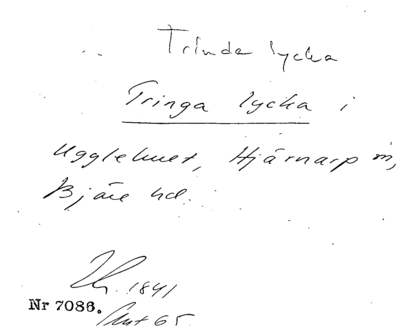 Trinda lycka
Tringa lycka i
Ugglehuset, Hjärnarp sn,
Bjäre hd.
1841
Nr 7086.
65